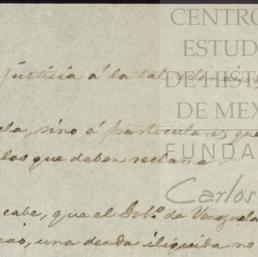 CENTRO
ESTUD
DE HISTO
DE MEX
FUNDA
Carlos
justicia á la
la, sino á particulares que
los que deben reclamar
cabe, que el Gob.º de Venezuela
una deuda iliquida no